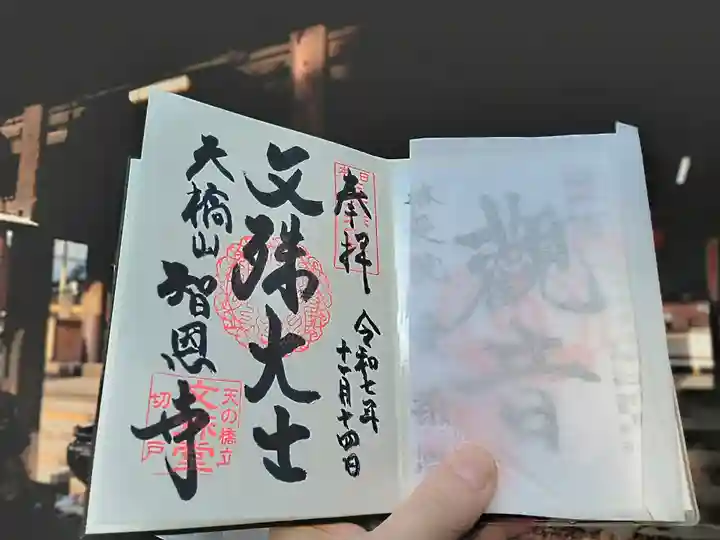 奉拝
令和七年
十一月十四日
文殊大士
天橋山
智恩寺
天の橋立
文殊堂
切戸
観音